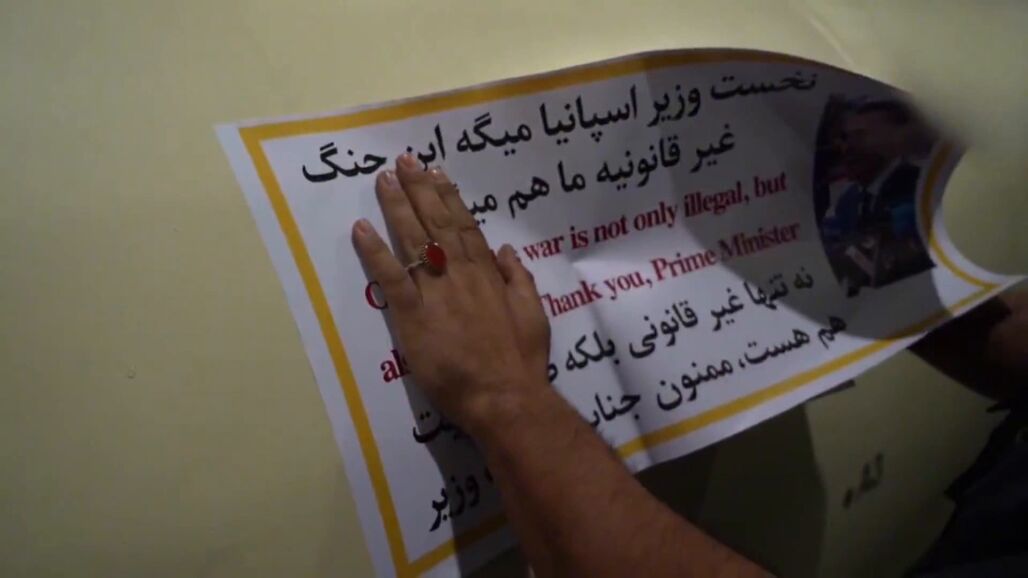 نخست وزیر اسپانیا میگه این جنگ
غیر قانونیه ما هم
war is not only illegal, but
Thank you, Prime Minister
نه تنها غیر قانونی بلکه
هم هست، ممنون
وزیر